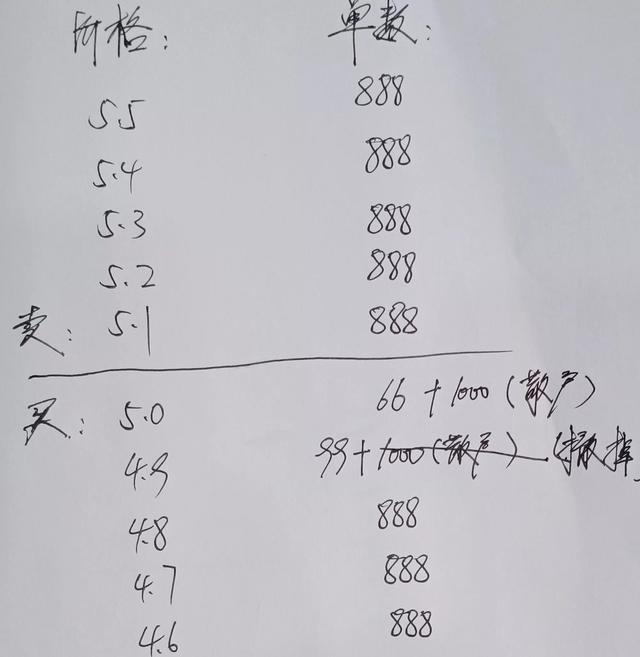 价格: 单数:
5.5 888
5.4 888
5.3 888
5.2 888
卖: 5.1 888
买: 5.0 66+1000(散户)
4.9 99+1000(散户).(撤掉
4.8 888
4.7 888
4.6 888